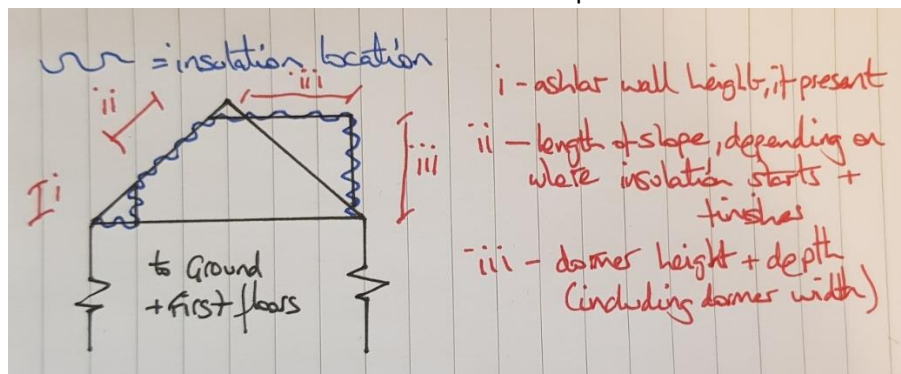 = insulation location
ii
iii
i
iii
to Ground
+ First floors
i - ashlar wall height, if present
ii - length of slope, depending on
where insulation starts +
finishes
iii - dormer height + depth
(including dormer width)